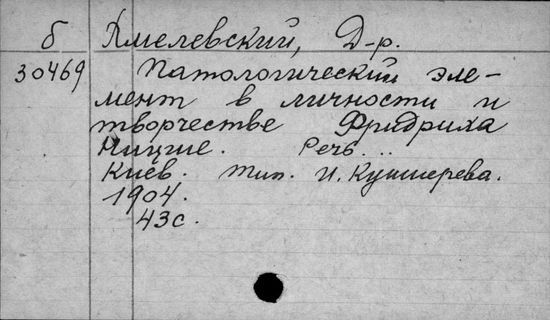 б Хмелевский, Д-р.
30469 Патологический эле-
мент в личности и
творчестве Фридриха
Ницше. Речь...
Киев. тип. И. Кушнерева.
1904.
43с.